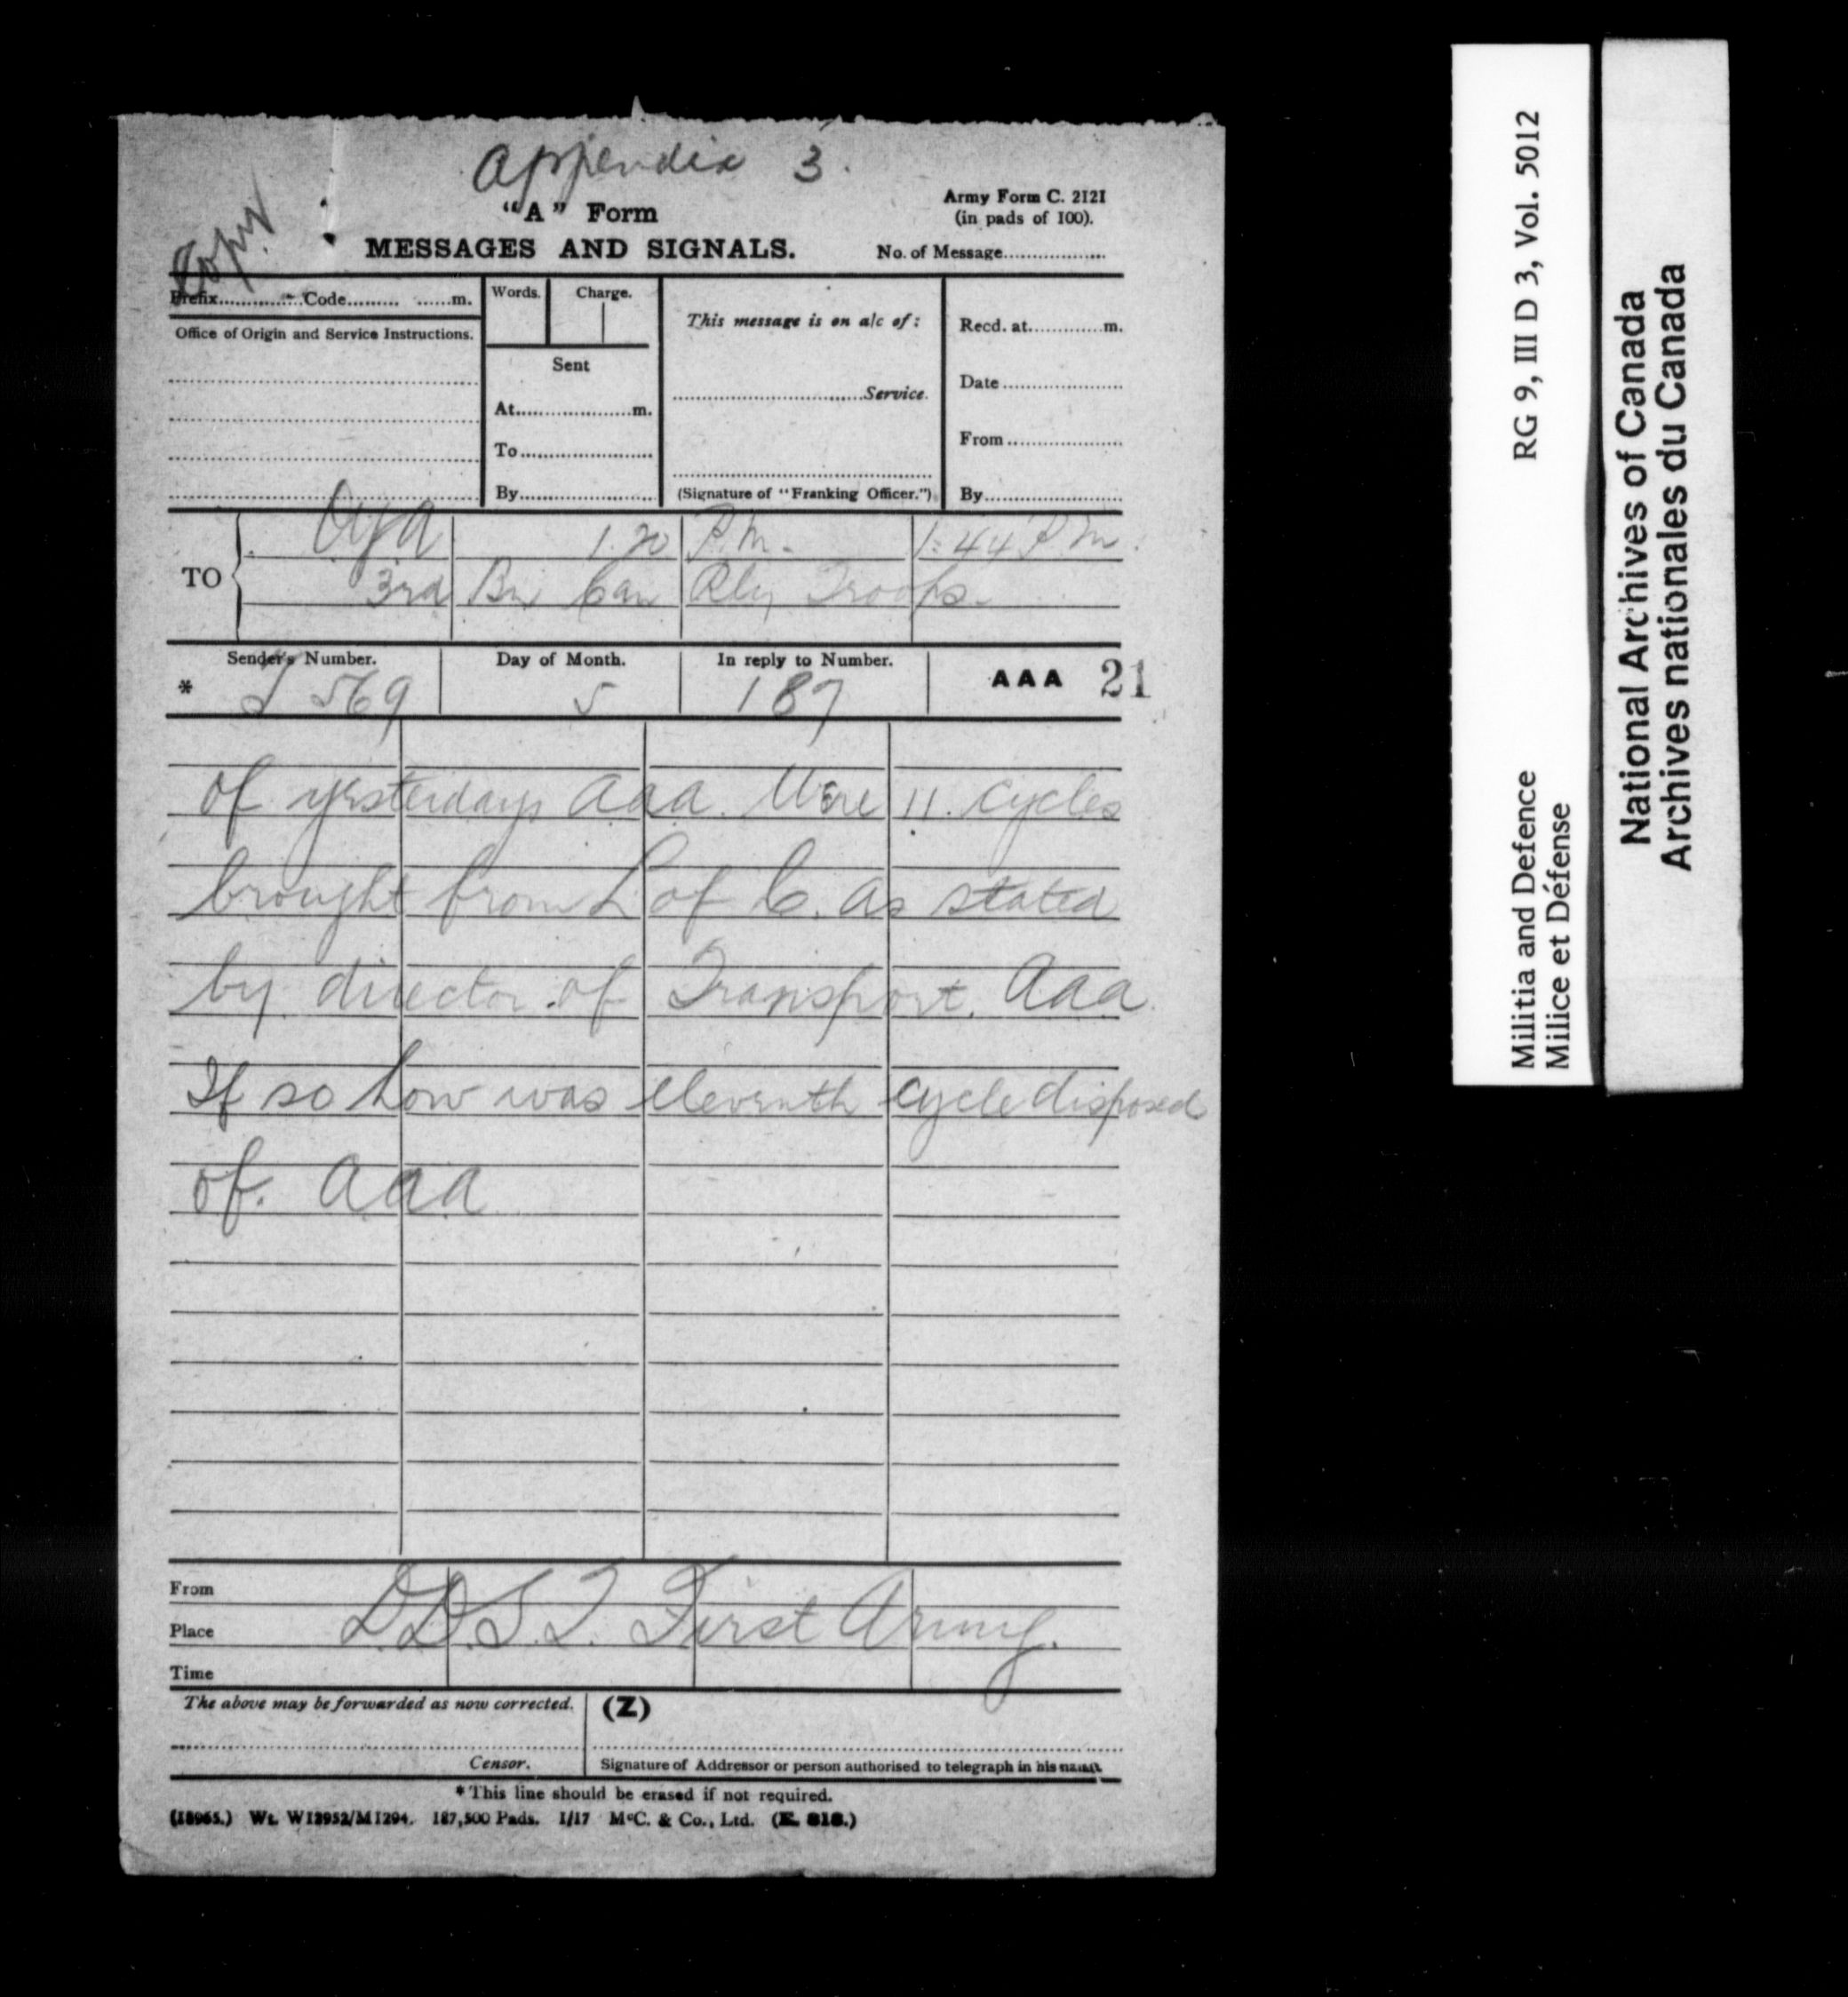 Appendix 3.
Copy
"A" Form
Army Form C. 2121
(in pads of 100).
MESSAGES AND SIGNALS.
No. of Message..................
Prefix............Code......... ......m.
Words. Charge.
This message is on a/c of:
Recd. at............m.
Office of Origin and Service Instructions.
Sent
Date
At....................m.
Service.
To
From
By
(Signature of "Franking Officer.")
By
TO
1.20 P.M. 1:44 P.M.
3rd Bn Can Rly Troops.
Sender's Number. Day of Month. In reply to Number. AAA 21
* 569 5 187
of yesterdays aaa. Were 11. cycles
brought from L of C. as stated
by director of Transport. Aaa
If so how was eleventh cycle disposed
of. aaa
From
Place D.D.S.T. First Army.
Time
The above may be forwarded as now corrected. (Z)
Censor. Signature of Addressor or person authorised to telegraph in his name.
* This line should be erased if not required.
(18965.) Wt. W12952/M1294. 187,500 Pads. 1/17 McC. & Co., Ltd. (E. 818.)
Militia and Defence RG 9, III D 3, Vol. 5012
Milice et Défense
National Archives of Canada
Archives nationales du Canada